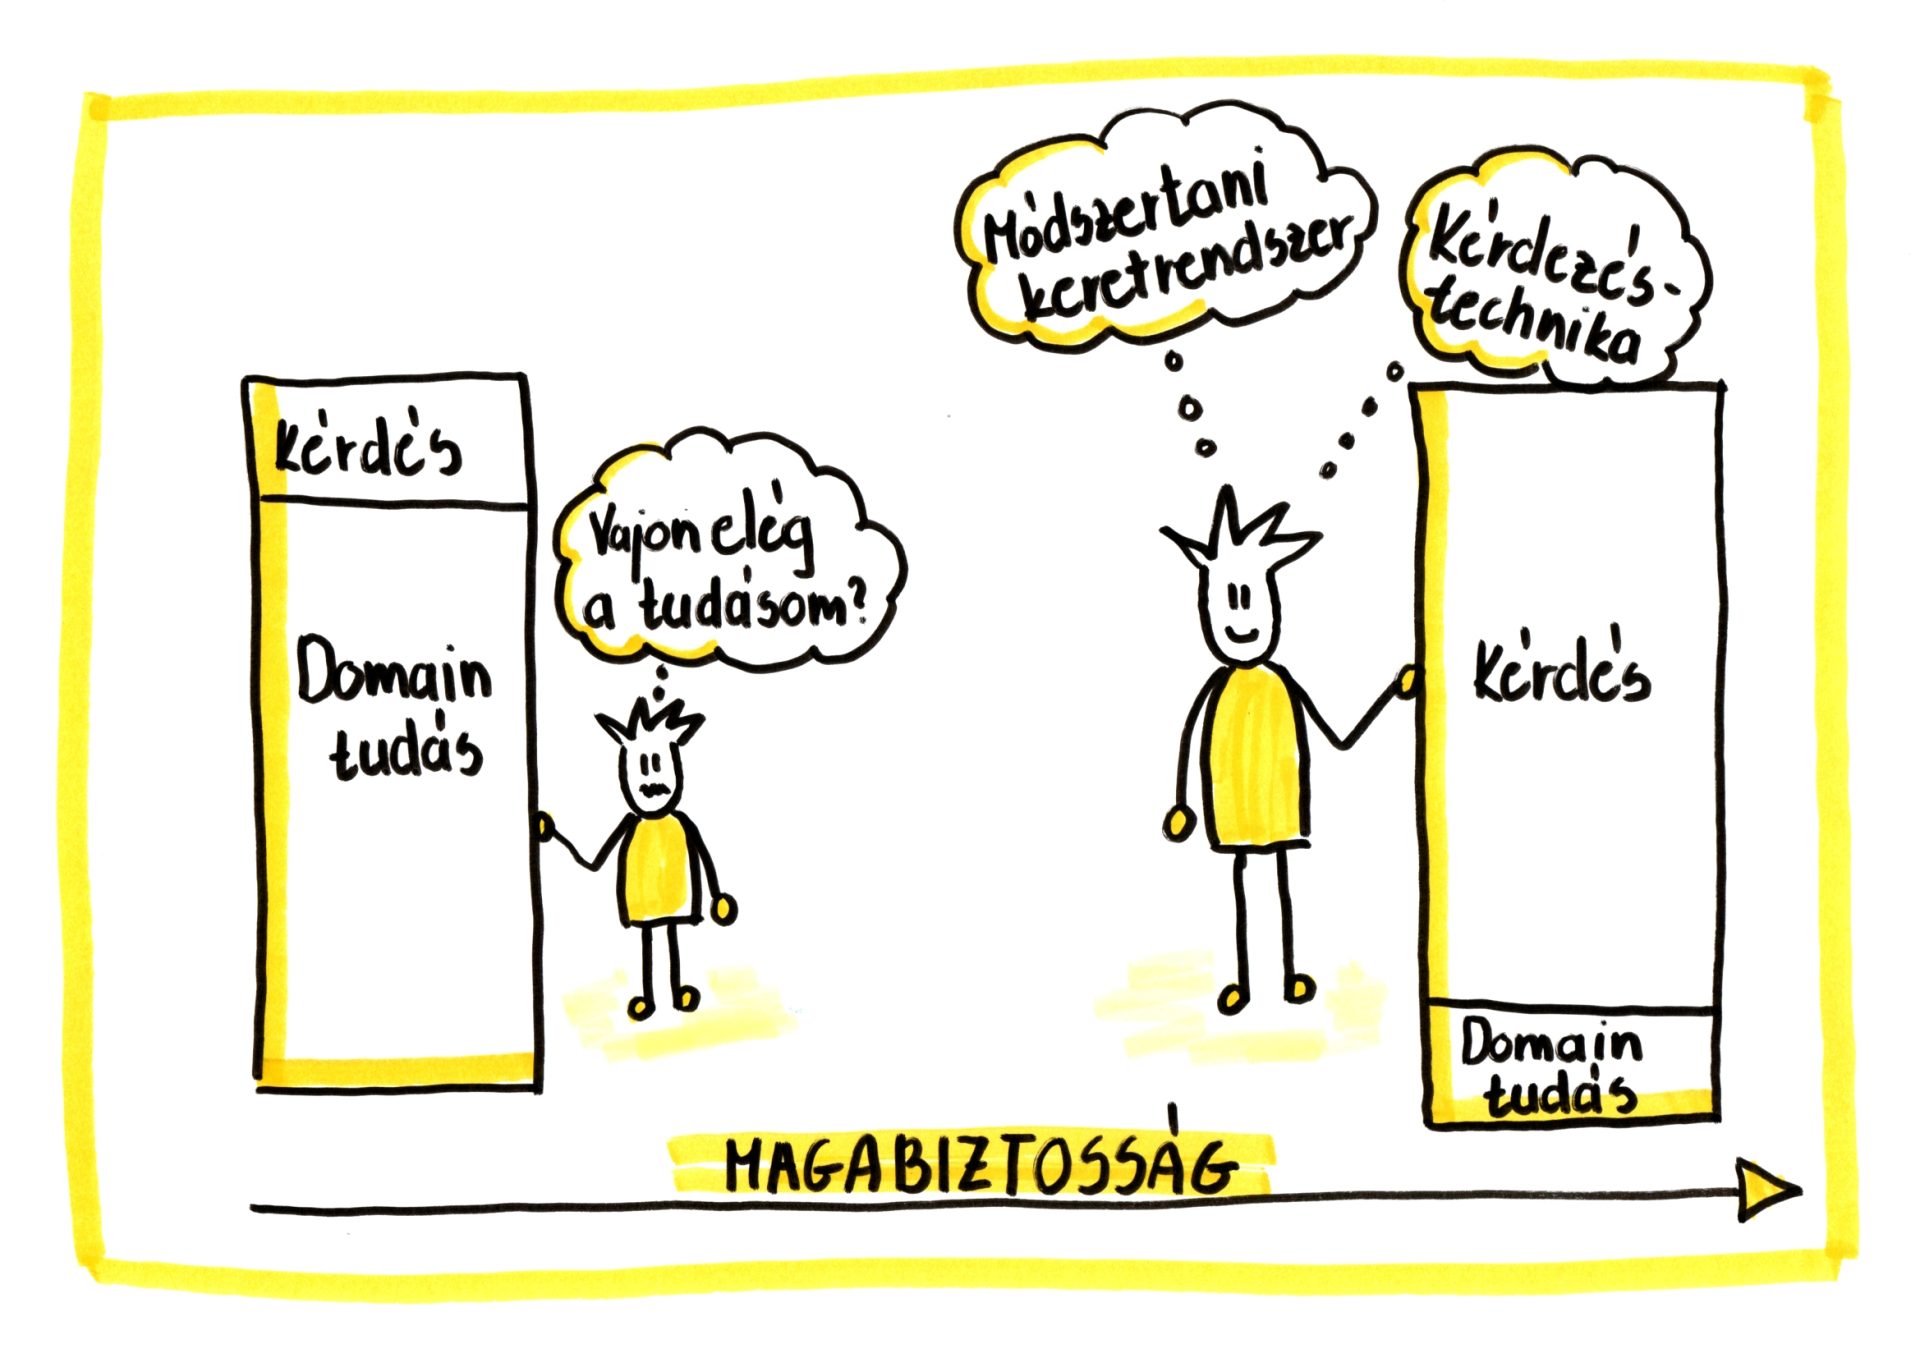 Kérdés
Domain
tudás
Vajon elég
a tudásom?
Módszertani
keretrendszer
Kérdezés-
technika
Kérdés
Domain
tudás
MAGABIZTOSSÁG